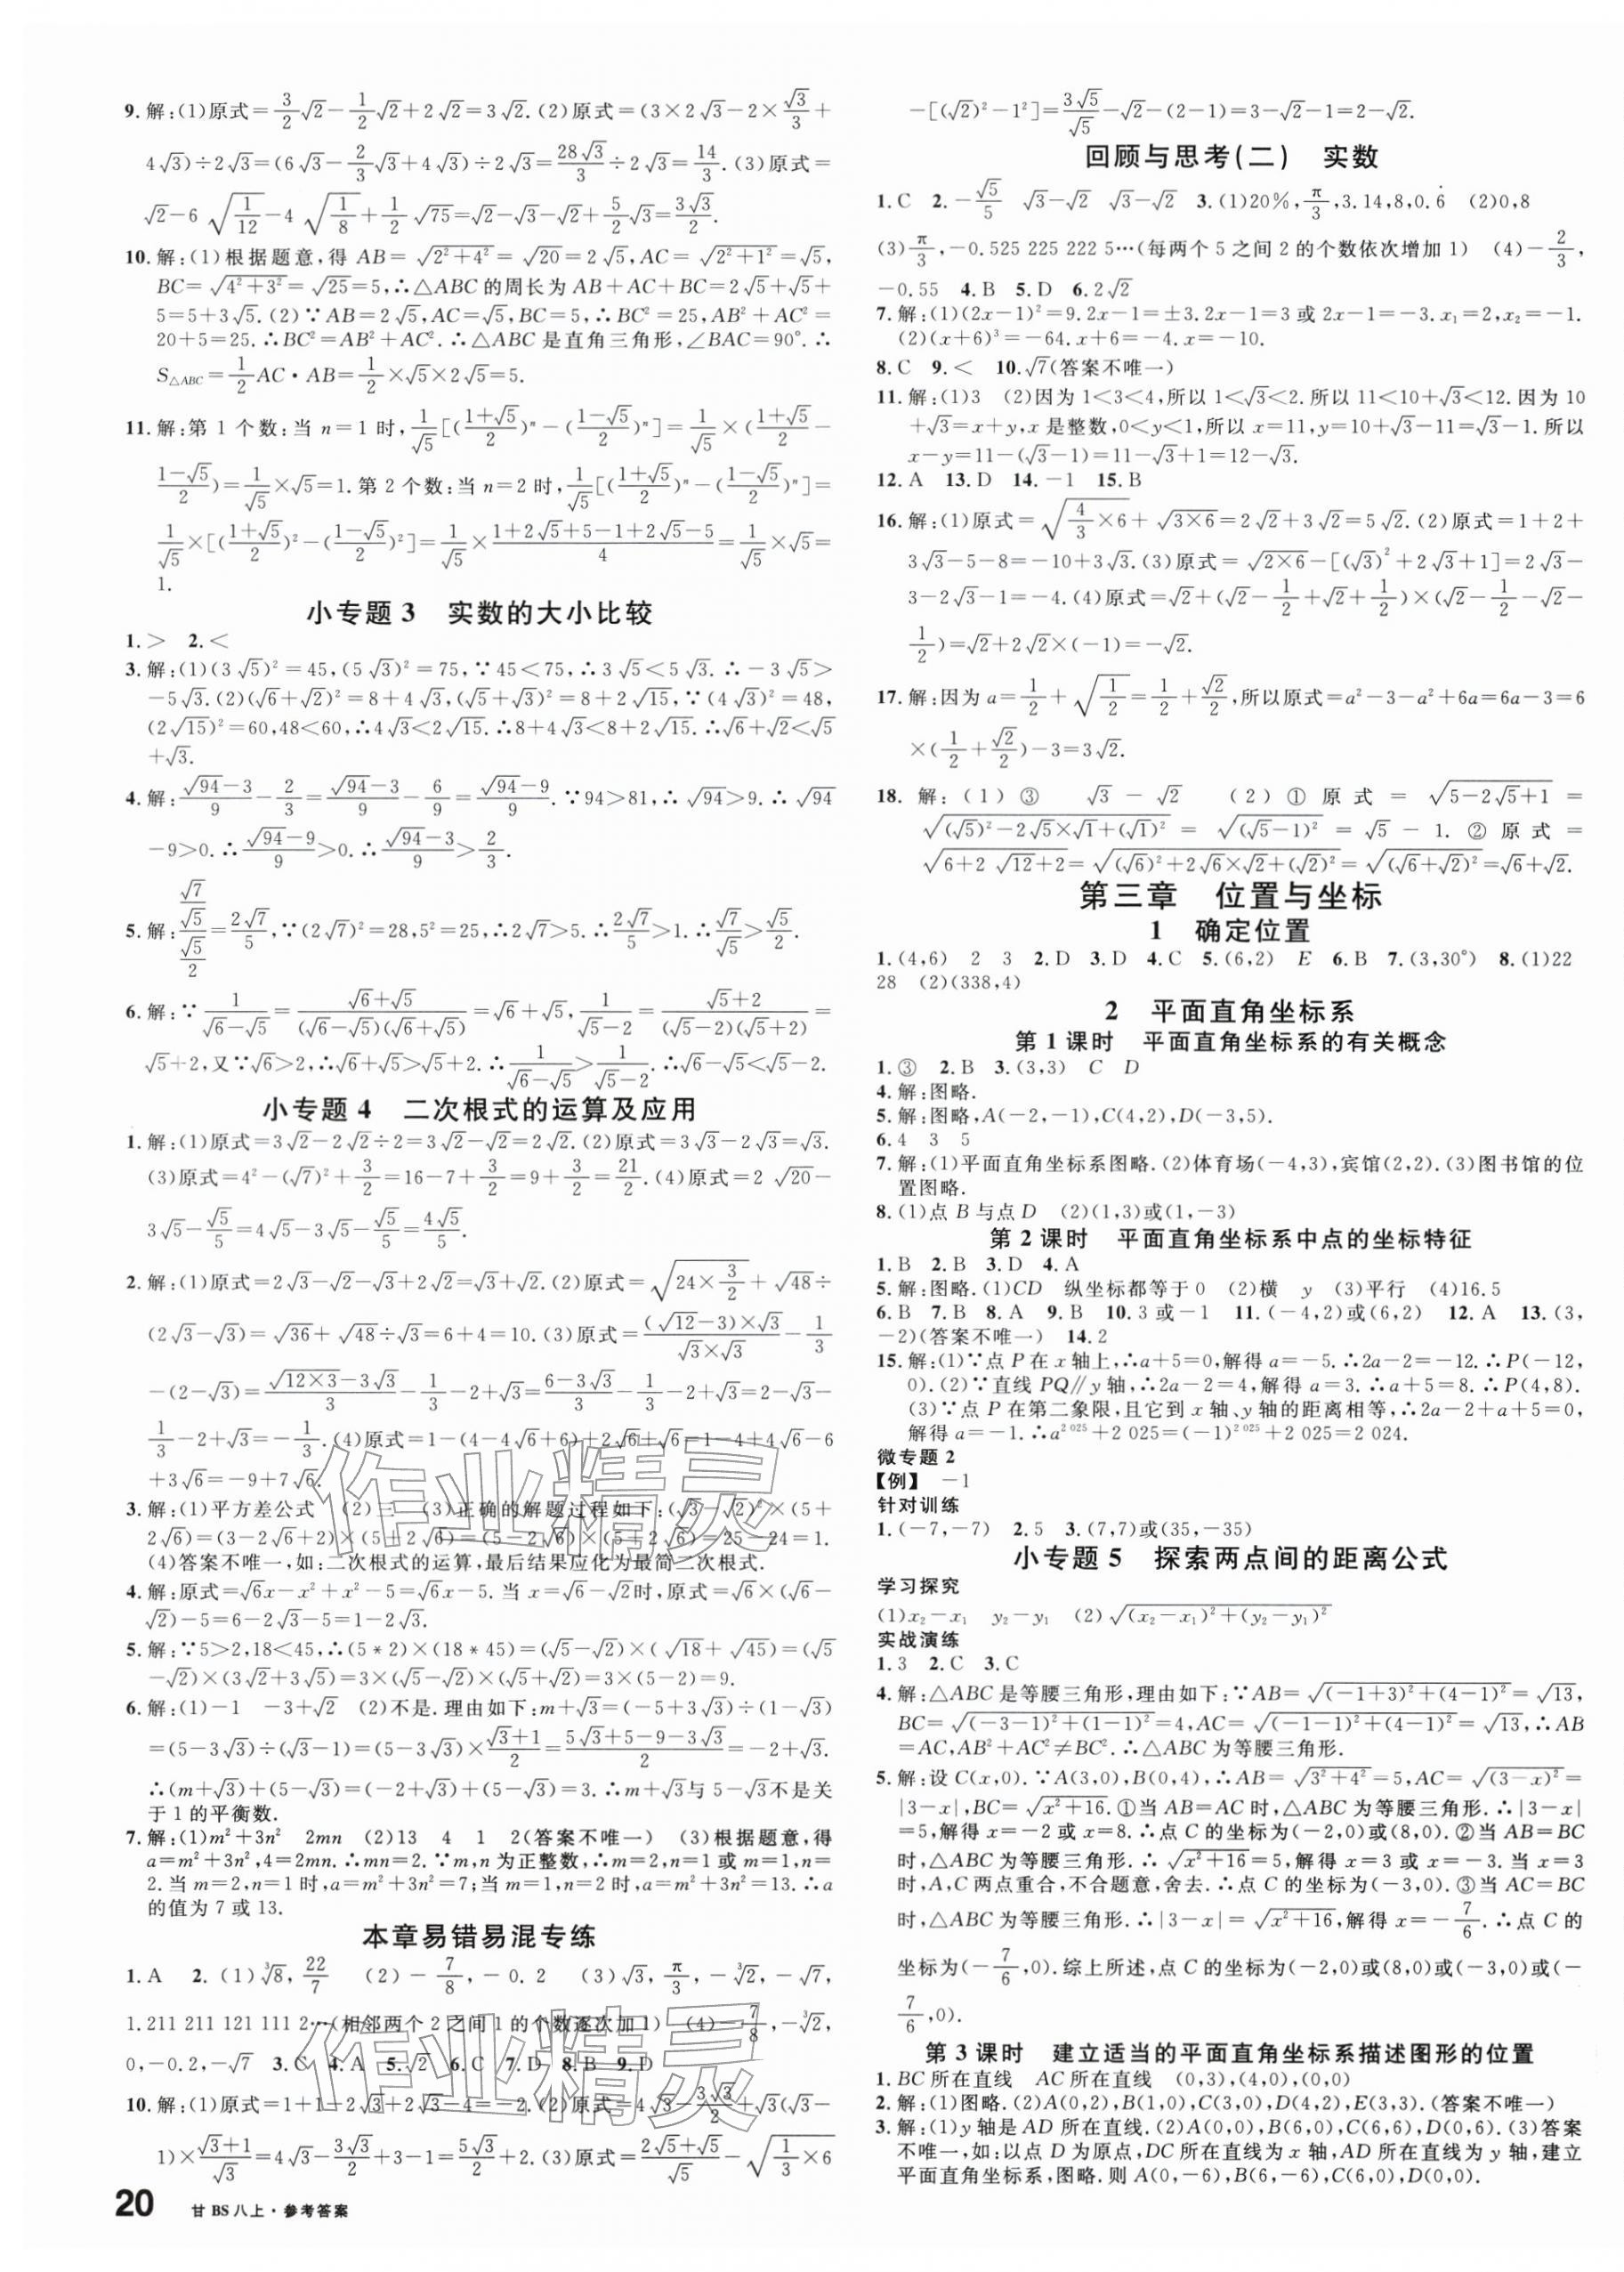 9.解:(1)原式=3/2√2-1/2√2+2√2=3√2.(2)原式=(3×2√3-2×√3/3+
4√3)÷2√3=(6√3-2/3√3+4√3)÷2√3=28√3/3÷2√3=14/3.(3)原式=
√2-6√(1/12)-4√(1/8)+1/2√75=√2-√3-√2+5/2√3=3√3/2.
10.解:(1)根据题意,得 AB=√(2²+4²)=√20=2√5,AC=√(2²+1²)=√5,
BC=√(4²+3²)=√25=5,∴△ABC的周长为AB+AC+BC=2√5+√5+
5=5+3√5.(2)∵AB=2√5,AC=√5,BC=5,∴BC²=25,AB²+AC²=
20+5=25.∴BC²=AB²+AC².∴△ABC是直角三角形,∠BAC=90°.∴
S△ABC=1/2AC·AB=1/2×√5×2√5=5.
11.解:第1个数:当n=1时,1/√5[((1+√5)/2)ⁿ-((1-√5)/2)ⁿ]=1/√5×((1+√5)/2-
(1-√5)/2)=1/√5×√5=1.第2个数:当n=2时,1/√5[((1+√5)/2)ⁿ-((1-√5)/2)ⁿ]=
1/√5×[((1+√5)/2)²-((1-√5)/2)²]=1/√5×(1+2√5+5-1+2√5-5)/4=1/√5×√5=
1.
小专题3 实数的大小比较
1.> 2.<
3.解:(1)(3√5)²=45,(5√3)²=75,∵45<75,∴3√5<5√3.∴-3√5>
-5√3.(2)(√6+√2)²=8+4√3,(√5+√3)²=8+2√15,∵(4√3)²=48,
(2√15)²=60,48<60,∴4√3<2√15.∴8+4√3<8+2√15.∴√6+√2<√5
+√3.
4.解:(√94-3)/9-2/3=(√94-3)/9-6/9=(√94-9)/9.∵94>81,∴√94>9.∴√94
-9>0.∴(√94-9)/9>0.∴(√94-3)/9>2/3.
5.解:(√7/√5)/(√5/2)=2√7/5,∵(2√7)²=28,5²=25,∴2√7>5.∴2√7/5>1.∴√7/√5>√5/2.
6.解:∵1/(√6-√5)=(√6+√5)/((√6-√5)(√6+√5))=√6+√5,1/(√5-2)=(√5+2)/((√5-2)(√5+2))=
√5+2,又∵√6>2,∴√6+√5>√5+2.∴1/(√6-√5)>1/(√5-2).∴√6-√5<√5-2.
小专题4 二次根式的运算及应用
1.解:(1)原式=3√2-2√2÷2=3√2-√2=2√2.(2)原式=3√3-2√3=√3.
(3)原式=4²-(√7)²+3/2=16-7+3/2=9+3/2=21/2.(4)原式=2√20-
3√5-√5/5=4√5-3√5-√5/5=4√5/5.
2.解:(1)原式=2√3-√2-√3+2√2=√3+√2.(2)原式=√(24×3/2)+√48÷
(2√3-√3)=√36+√48÷√3=6+4=10.(3)原式=(√12-3)×√3/(√3×√3)-1/3
-(2-√3)=(√(12×3)-3√3)/3-1/3-2+√3=(6-3√3)/3-1/3-2+√3=2-√3-
1/3-2+√3=-1/3.(4)原式=1-(4-4√6+6)+2√6+√6=1-4+4√6-6
+3√6=-9+7√6.
3.解:(1)平方差公式 (2)三 (3)正确的解题过程如下:(√3-√2)²×(5+
2√6)=(3-2√6+2)×(5+2√6)=(5-2√6)×(5+2√6)=25-24=1.
(4)答案不唯一,如:二次根式的运算,最后结果应化为最简二次根式.
4.解:原式=√6x-x²+x²-5=√6x-5.当x=√6-√2时,原式=√6×(√6-
√2)-5=6-2√3-5=1-2√3.
5.解:∵5>2,18<45,∴(5*2)×(18*45)=(√5-√2)×(√18+√45)=(√5
-√2)×(3√2+3√5)=3×(√5-√2)×(√5+√2)=3×(5-2)=9.
6.解:(1)-1 -3+√2 (2)不是.理由如下:m+√3=(-5+3√3)÷(1-√3)
=(5-3√3)÷(√3-1)=(5-3√3)×(√3+1)/2=(5√3+5-9-3√3)/2=-2+√3.
∴(m+√3)+(5-√3)=(-2+√3)+(5-√3)=3.∴m+√3与5-√3不是关
于1的平衡数.
7.解:(1)m²+3n² 2mn (2)13 4 1 2(答案不唯一) (3)根据题意,得
a=m²+3n²,4=2mn.∴mn=2.∵m,n为正整数,∴m=2,n=1或m=1,n=
2.当m=2,n=1时,a=m²+3n²=7;当m=1,n=2时,a=m²+3n²=13.∴a
的值为7或13.
本章易错易混专练
1.A 2.(1)³√8,22/7 (2)-7/8,-0.2 (3)√3,π/3,-³√2,-√7,
1.211 211 121 111 2…(相邻两个2之间1的个数逐次加1) (4)-7/8,-³√2,
0,-0.2,-√7 3.C 4.A 5.√2 6.C 7.D 8.B 9.D
10.解:(1)原式=1+1-2+2√3-2√3-4=-2.(2)原式=4√3-3√3/2+√3(√3-
1)×(√3+1)/√3=4√3-3√3/2+3-1=5√3/2+2.(3)原式=(2√5+√5)/√5-√(1/3)×6
20 甘BS八上·参考答案
-[(√2)²-1²]=3√5/√5-√2-(2-1)=3-√2-1=2-√2.
回顾与思考(二) 实数
1.C 2.-√5/5 √3-√2 √3-√2 3.(1)20%,π/3,3.14,8,0.6̇ (2)0,8
(3)π/3,-0.525 225 222 5…(每两个5之间2的个数依次增加1) (4)-2/3,
-0.55 4.B 5.D 6.2√2
7.解:(1)(2x-1)²=9.2x-1=±3.2x-1=3或2x-1=-3.x₁=2,x₂=-1.
(2)(x+6)³=-64.x+6=-4.x=-10.
8.C 9.< 10.√7(答案不唯一)
11.解:(1)3 (2)因为1<3<4,所以1<√3<2.所以11<10+√3<12.因为10
+√3=x+y,x是整数,0<y<1,所以x=11,y=10+√3-11=√3-1.所以
x-y=11-(√3-1)=11-√3+1=12-√3.
12.A 13.D 14.-1 15.B
16.解:(1)原式=√(4/3×6)+√(3×6)=2√2+3√2=5√2.(2)原式=1+2+
3√3-5-8=-10+3√3.(3)原式=√(2×6)-[(√3)²+2√3+1]=2√3-
3-2√3-1=-4.(4)原式=√2+(√2-1/2+√2+1/2)×(√2-1/2-√2-
1/2)=√2+2√2×(-1)=-√2.
17.解:因为a=1/2+√(1/2)=1/2+√2/2,所以原式=a²-3-a²+6a=6a-3=6
×(1/2+√2/2)-3=3√2.
18.解:(1)③ √3-√2 (2)①原式=√(5-2√5+1)=
√((√5)²-2√5×√1+(√1)²)=√((√5-1)²)=√5-1.②原式=
√(6+2√12+2)=√((√6)²+2√6×√2+(√2)²)=√((√6+√2)²)=√6+√2.
第三章 位置与坐标
1 确定位置
1.(4,6) 2 3 2.D 3.D 4.C 5.(6,2) E 6.B 7.(3,30°) 8.(1)22
28 (2)(338,4)
2 平面直角坐标系
第1课时 平面直角坐标系的有关概念
1.③ 2.B 3.(3,3) C D
4.解:图略.
5.解:图略,A(-2,-1),C(4,2),D(-3,5).
6.4 3 5
7.解:(1)平面直角坐标系图略.(2)体育场(-4,3),宾馆(2,2).(3)图书馆的位
置图略.
8.(1)点B与点D (2)(1,3)或(1,-3)
第2课时 平面直角坐标系中点的坐标特征
1.B 2.B 3.D 4.A
5.解:图略.(1)CD 纵坐标都等于0 (2)横 y (3)平行 (4)16.5
6.B 7.B 8.A 9.B 10.3或-1 11.(-4,2)或(6,2) 12.A 13.(3,
-2)(答案不唯一) 14.2
15.解:(1)∵点P在x轴上,∴a+5=0,解得a=-5.∴2a-2=-12.∴P(-12,
0).(2)∵直线PQ∥y轴,∴2a-2=4,解得a=3.∴a+5=8.∴P(4,8).
(3)∵点P在第二象限,且它到x轴、y轴的距离相等,∴2a-2+a+5=0,
解得a=-1.∴a²⁰²⁵+2 025=(-1)²⁰²⁵+2 025=2 024.
微专题2
【例】 -1
针对训练
1.(-7,-7) 2.5 3.(7,7)或(35,-35)
小专题5 探索两点间的距离公式
学习探究
(1)x₂-x₁ y₂-y₁ (2)√((x₂-x₁)²+(y₂-y₁)²)
实战演练
1.3 2.C 3.C
4.解:△ABC是等腰三角形,理由如下:∵AB=√((-1+3)²+(4-1)²)=√13,
BC=√((-3-1)²+(1-1)²)=4,AC=√((-1-1)²+(4-1)²)=√13,∴AB
=AC,AB²+AC²≠BC².∴△ABC为等腰三角形.
5.解:设C(x,0).∵A(3,0),B(0,4),∴AB=√(3²+4²)=5,AC=√((3-x)²)=
|3-x|,BC=√(x²+16).①当AB=AC时,△ABC为等腰三角形.∴|3-x|
=5,解得x=-2或x=8.∴点C的坐标为(-2,0)或(8,0).②当AB=BC
时,△ABC为等腰三角形.∴√(x²+16)=5,解得x=3或x=-3.当x=3
时,A,C两点重合,不合题意,舍去.∴点C的坐标为(-3,0).③当AC=BC
时,△ABC为等腰三角形.∴|3-x|=√(x²+16),解得x=-7/6.∴点C的
坐标为(-7/6,0).综上所述,点C的坐标为(-2,0)或(8,0)或(-3,0)或(-
7/6,0).
第3课时 建立适当的平面直角坐标系描述图形的位置
1.BC所在直线 AC所在直线 (0,3),(4,0),(0,0)
2.解:(1)图略.(2)A(0,2),B(1,0),C(3,0),D(4,2),E(3,3).(答案不唯一)
3.解:(1)y轴是AD所在直线.(2)A(0,0),B(6,0),C(6,6),D(0,6).(3)答案
不唯一,如:以点D为原点,DC所在直线为x轴,AD所在直线为y轴,建立
平面直角坐标系,图略.则A(0,-6),B(6,-6),C(6,0),D(0,0).
作业精灵
作业精灵